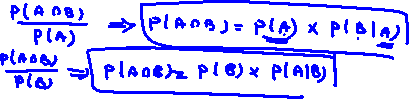 P(A∩B)/P(A) ⇒ P(A∩B) = P(A) × P(B|A)
P(A∩B)/P(B) ⇒ P(A∩B) = P(B) × P(A|B)